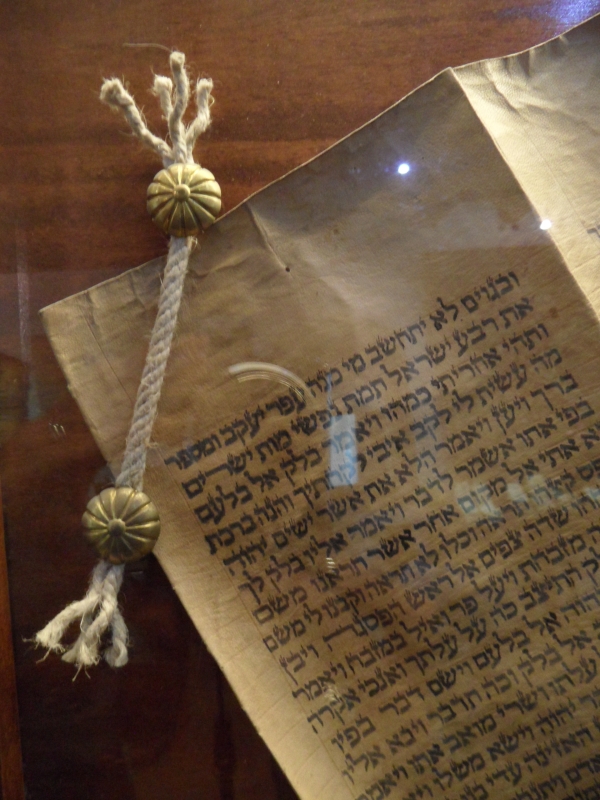 ובגוים לא יתחשב מי מנה עפר יעקב ומספר
את רבע ישראל תמת נפשי מות ישרים
ותהי אחריתי כמהו ויאמר בלק אל בלעם
מה עשית לי לקב איבי לקחתיך והנה ברכת
ברך ויען ויאמר הלא את אשר ישים יהוה
בפי אתו אשמר לדבר ויאמר אליו בלק לך
אתי אל מקום אחר אשר תראנו משם
קצהו תראה וכלו לא תראה וקבנו לי משם
שדה צפים אל ראש הפסגה ויבן
מזבחת ויעל פר ואיל במזבח ויאמר
התיצב כה על עלתך ואנכי אקרה
אל בלעם וישם דבר בפיו
אל בלק וכה תדבר ויבא אליו
עלתו ושרי מואב אתו ויאמר
יהוה וישא משלו ויאמר
האזינה עדי
אדם